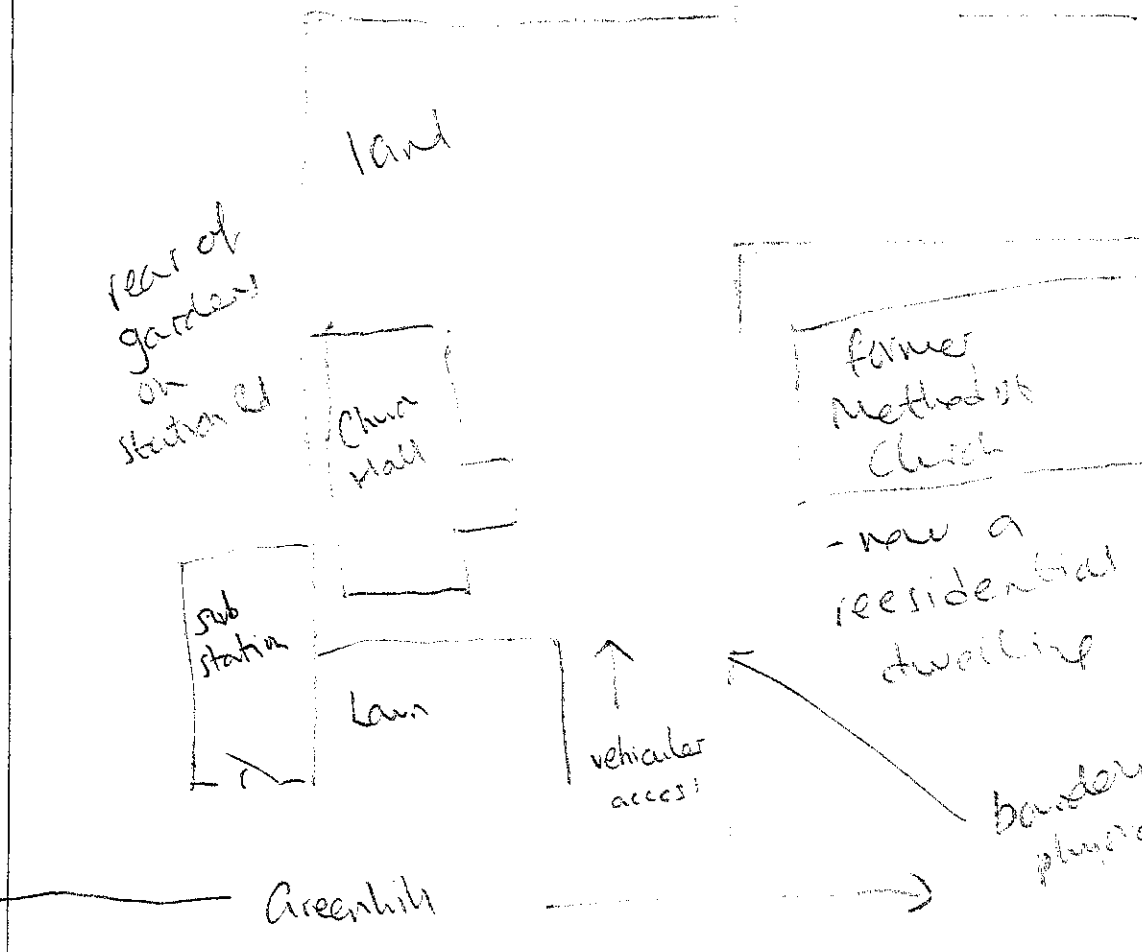 land
rear of
gardens
on
Station Rd
Church
Hall
former
Methodist
Church
- now a
reesidential
dwelling
sub
station
Lawn
vehicular
access
Greenhill